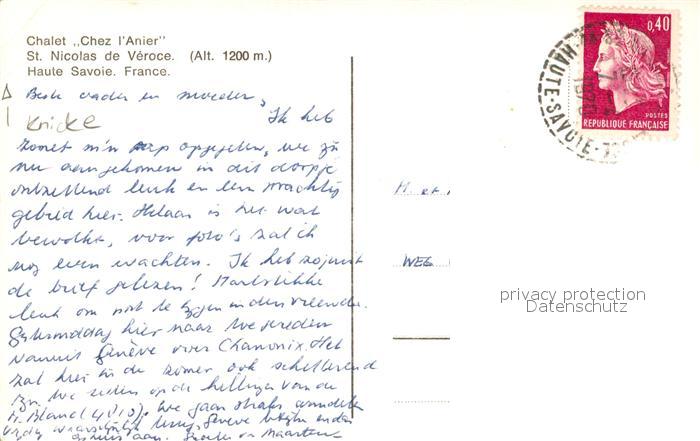 Chalet „Chez l'Anier"
St. Nicolas de Véroce. (Alt. 1200 m.)
Haute Savoie. France.
Beste vader en moeder,
Knicke
Ik heb
zonet m'n opgegeten, we zijn
nu aangekomen in dit dorpje
ontzettend leuk en een prachtig
gebied hier. Helaas is het wat
bewolkt, voor foto's zal ik
nog even wachten. Ik heb zojuist
de brief gelezen! Hartstikke
leuk om post te krijgen in den vreemde.
hier naar toe gereden
vanuit Genève over Chamonix. Het
zal hier in de zomer ook schitterend
zijn. We zitten op de hellingen van de
M. Blanc (4810). We gaan straks wandelen
waarschijnlijk terug, Genève
aan. Groeten van Maarten
M. et
WEG
0,40
POSTES
REPUBLIQUE FRANÇAISE
HAUTE-SAVOIE
1970
privacy protection
Datenschutz